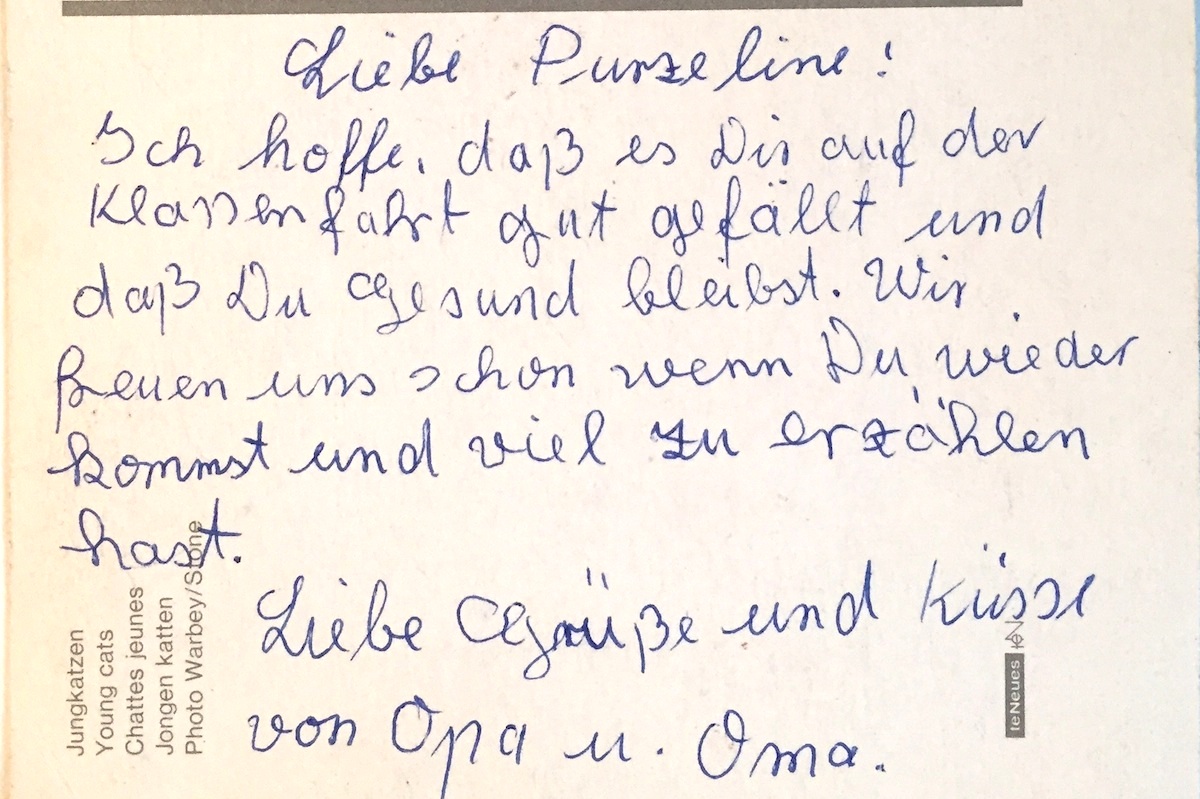 Liebe Purzeline!
Ich hoffe, daß es Dir auf der
Klassenfahrt gut gefällt und
daß Du Gesund bleibst. Wir
freuen uns schon wenn Du wieder
kommst und viel zu erzählen
hast.
Liebe Grüße und Küsse
von Opa u. Oma.
Jungkatzen
Young cats
Chattes jeunes
Jongen katten
Photo Warbey/Stone
teNeues